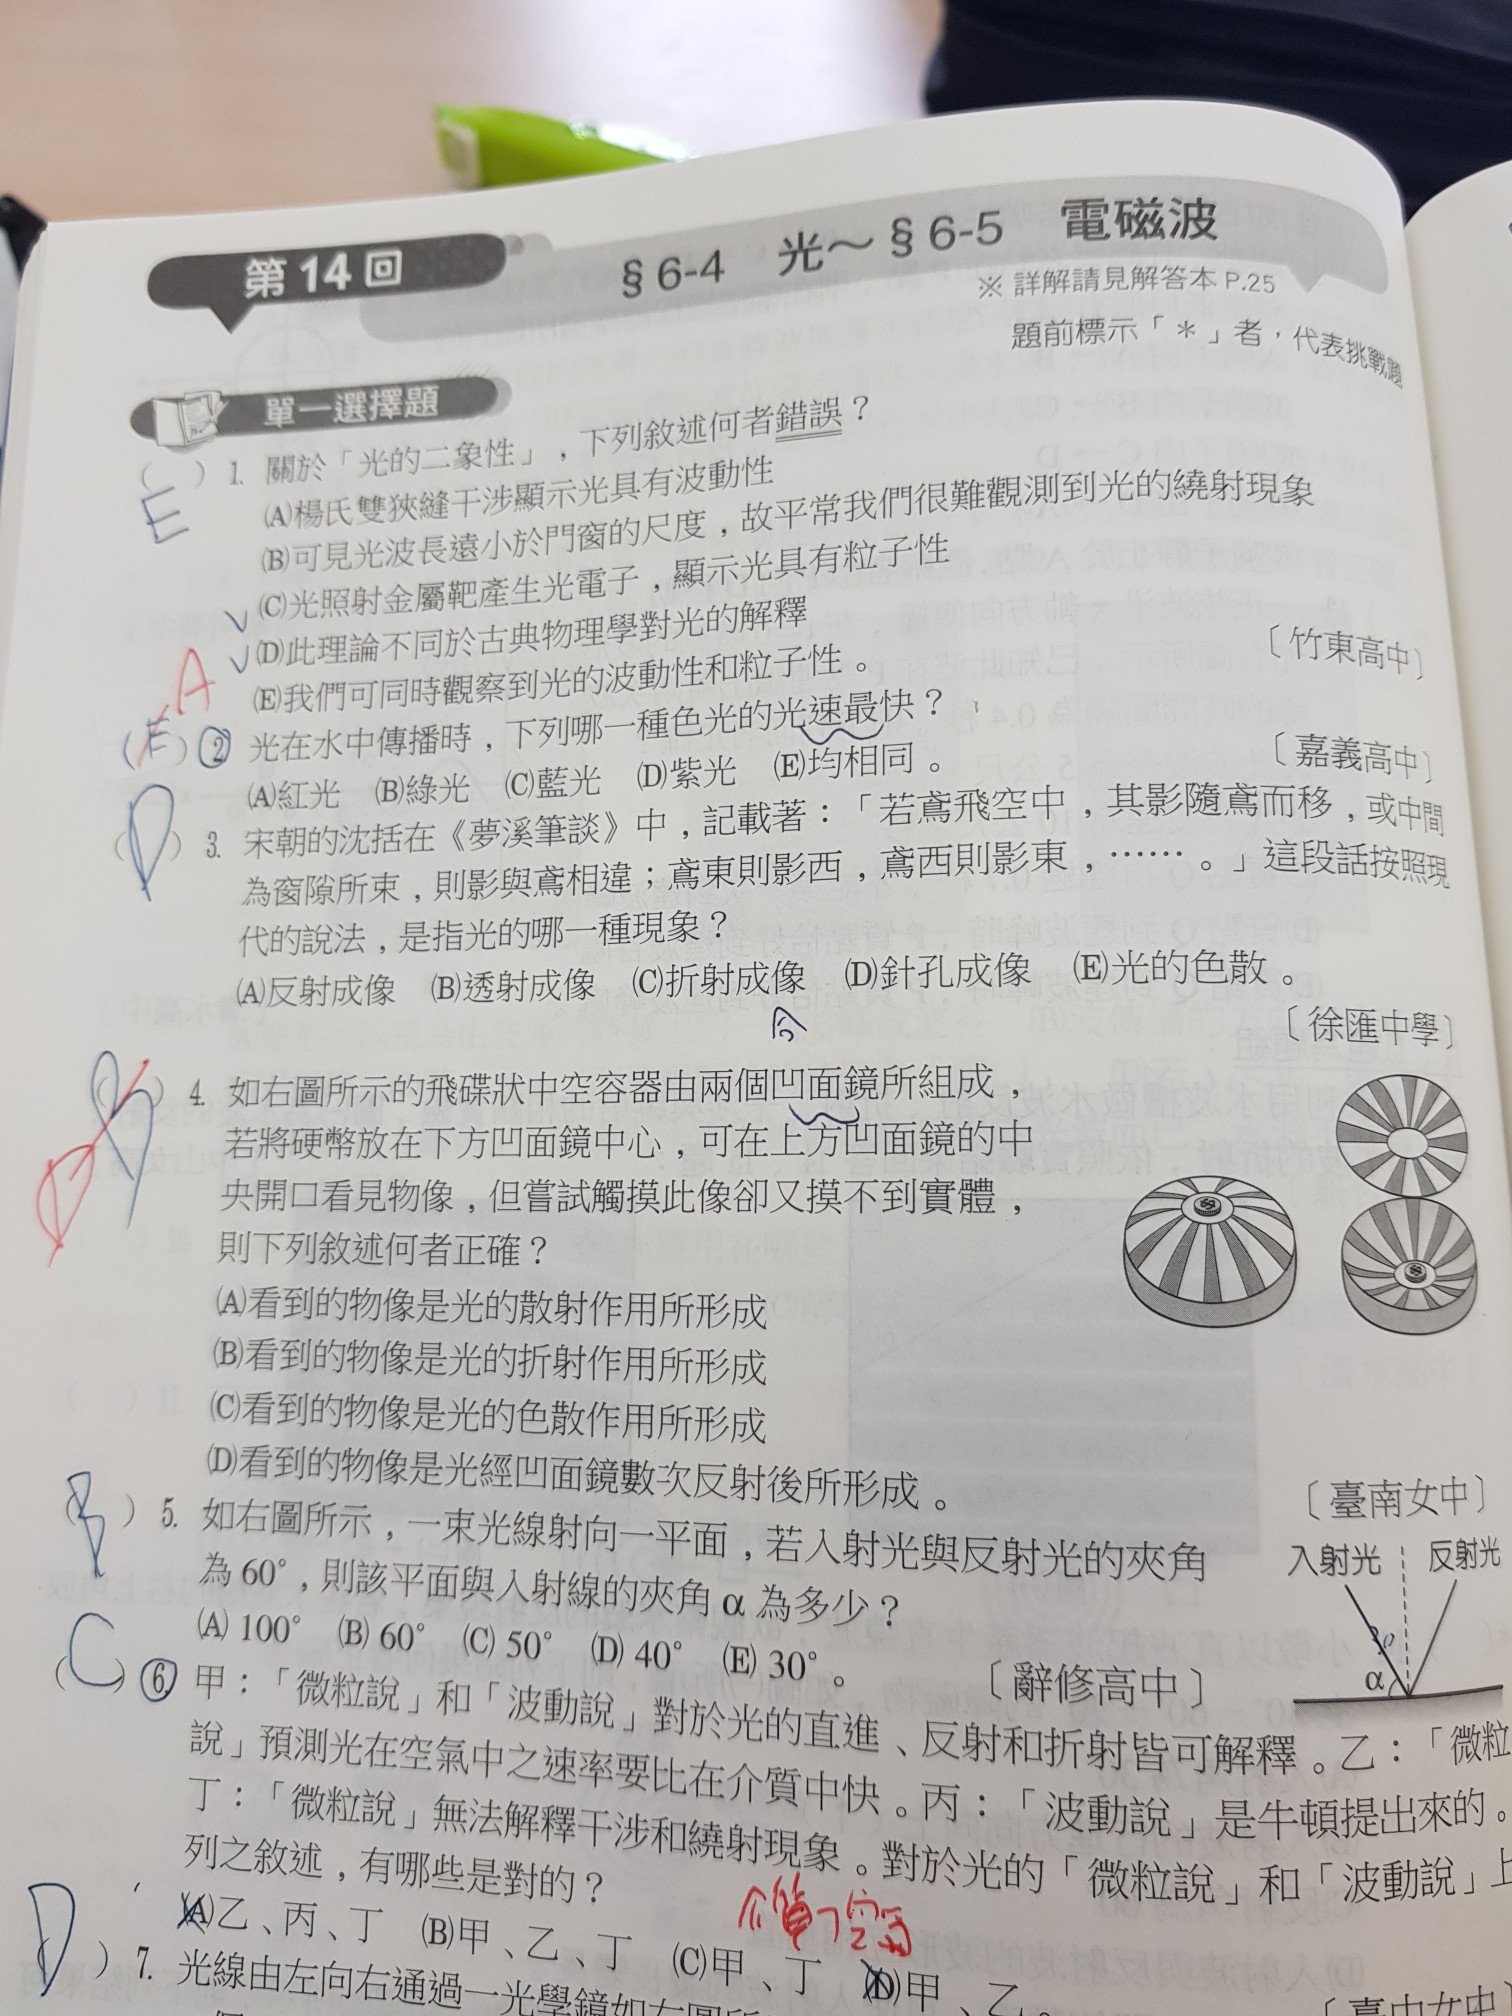 第14回
§6-4 光～§6-5 電磁波
※ 詳解請見解答本 P.25
題前標示「＊」者，代表挑戰題
單一選擇題
( E ) 1. 關於「光的二象性」，下列敘述何者錯誤？
(A)楊氏雙狹縫干涉顯示光具有波動性
(B)可見光波長遠小於門窗的尺度，故平常我們很難觀測到光的繞射現象
(C)光照射金屬靶產生光電子，顯示光具有粒子性
(D)此理論不同於古典物理學對光的解釋
(E)我們可同時觀察到光的波動性和粒子性。
〔竹東高中〕
A
( E ) 2. 光在水中傳播時，下列哪一種色光的光速最快？
(A)紅光 (B)綠光 (C)藍光 (D)紫光 (E)均相同。
〔嘉義高中〕
( D ) 3. 宋朝的沈括在《夢溪筆談》中，記載著：「若鳶飛空中，其影隨鳶而移，或中間
為窗隙所束，則影與鳶相違；鳶東則影西，鳶西則影東，……。」這段話按照現
代的說法，是指光的哪一種現象？
(A)反射成像 (B)透射成像 (C)折射成像 (D)針孔成像 (E)光的色散。
〔徐匯中學〕
D
( B ) 4. 如右圖所示的飛碟狀中空容器由兩個凹面鏡所組成，
若將硬幣放在下方凹面鏡中心，可在上方凹面鏡的中
央開口看見物像，但嘗試觸摸此像卻又摸不到實體，
則下列敘述何者正確？
(A)看到的物像是光的散射作用所形成
(B)看到的物像是光的折射作用所形成
(C)看到的物像是光的色散作用所形成
(D)看到的物像是光經凹面鏡數次反射後所形成。
〔臺南女中〕
( B ) 5. 如右圖所示，一束光線射向一平面，若入射光與反射光的夾角
為60°，則該平面與入射線的夾角 α 為多少？
(A) 100° (B) 60° (C) 50° (D) 40° (E) 30°。
〔辭修高中〕
入射光 反射光
α
( C ) 6. 甲：「微粒說」和「波動說」對於光的直進、反射和折射皆可解釋。乙：「微粒
說」預測光在空氣中之速率要比在介質中快。丙：「波動說」是牛頓提出來的。
丁：「微粒說」無法解釋干涉和繞射現象。對於光的「微粒說」和「波動說」上
列之敘述，有哪些是對的？
介質>空氣
(A)乙、丙、丁 (B)甲、乙、丁 (C)甲、丁 (D)甲、乙。
〔臺中女中
( D ) 7. 光線由左向右通過一光學鏡如右圖所